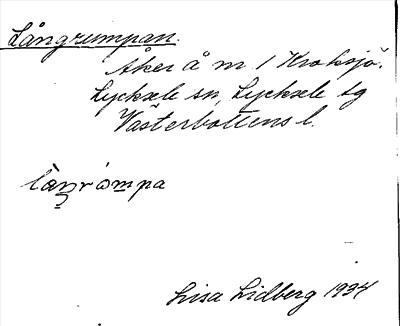 Långrumpan.
Åker å n 1 Kroksjö.
Lycksele sn, Lycksele tg
Västerbottens l.
Lisa Lidberg 1934